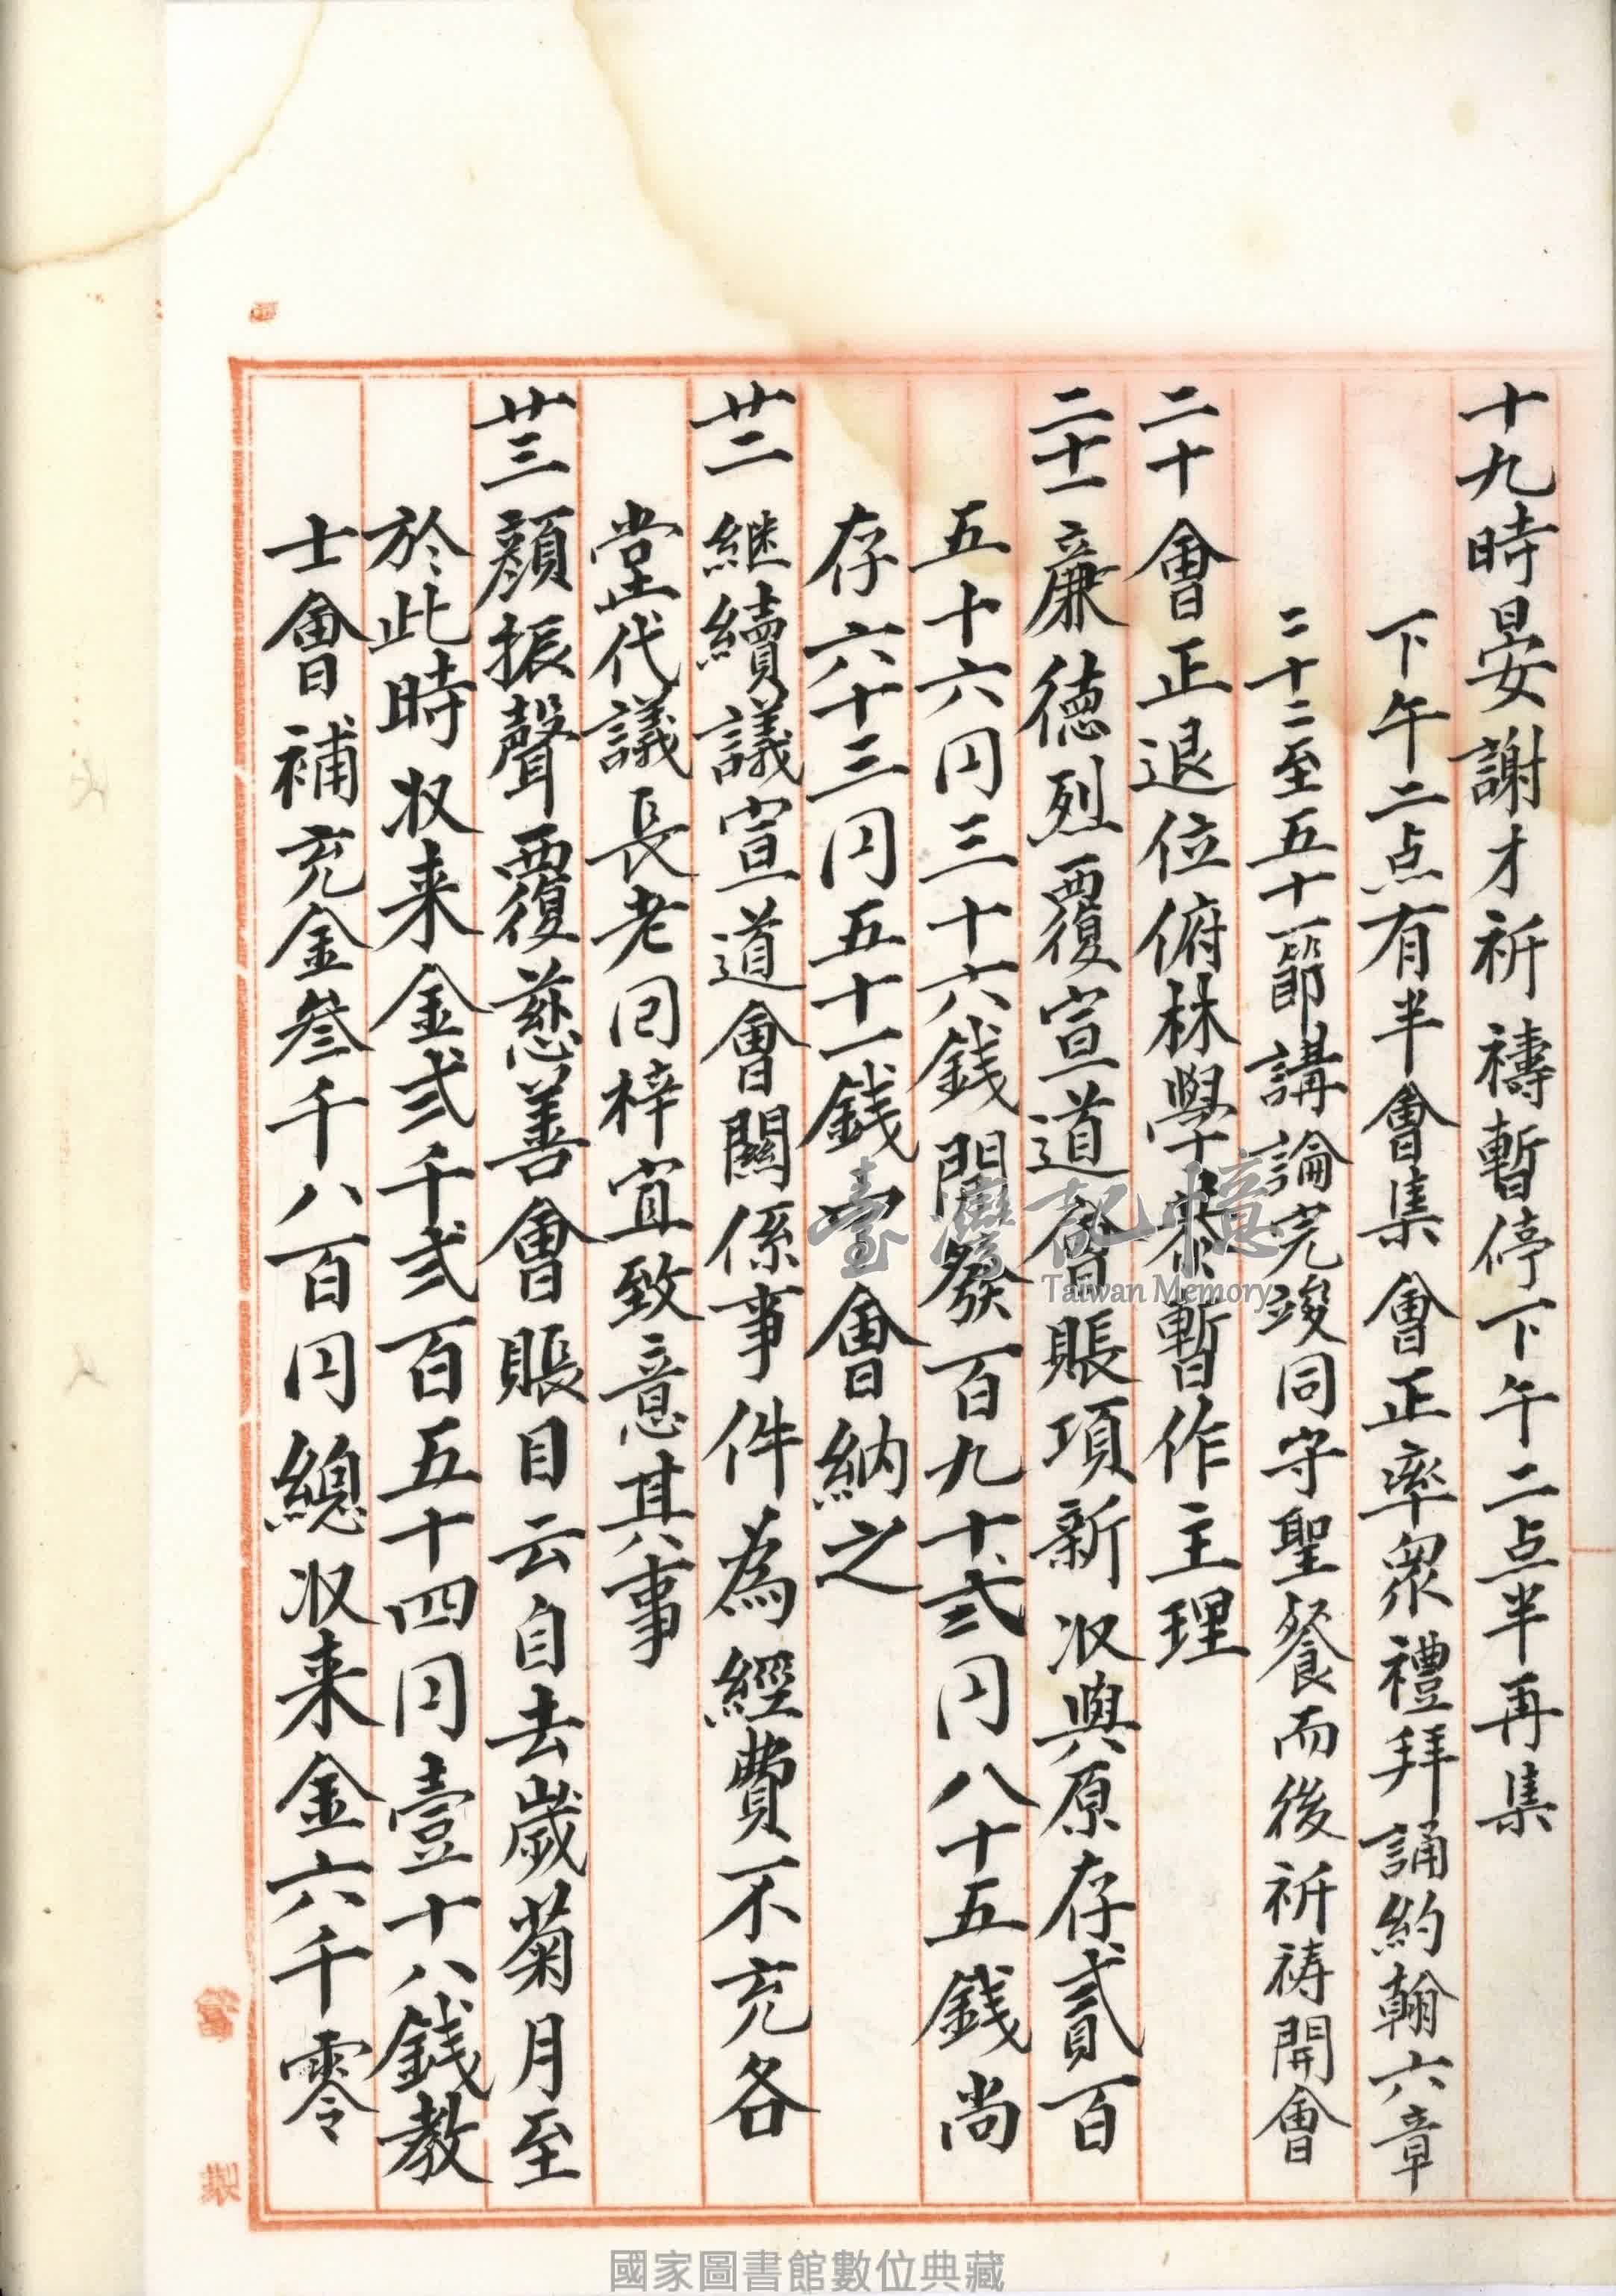 十九時晏謝才祈禱暫停下午二点半再集
下午二点有半會集會正率衆禮拜誦約翰六章
二十二至五十一節講論完竣同守聖餐而後祈祷開會
二十會正退位俯林學恭暫作主理
二十一廉德烈覆宣道會賬項新収與原存貳百
五十六円三十六銭開發百九十弍円八十五銭尚
存六十三円五十一銭 會納之
廿二継續議宣道會關係事件為經費不充各
堂代議長老囘梓宜致意其事
廿三顔振聲覆慈善會賬目云自去歲菊月至
於此時収来金弍千弍百五十四円壹十八銭教
士會補充金叄千八百円總収来金六千零
臺灣記憶
Taiwan Memory
國家圖書館數位典藏